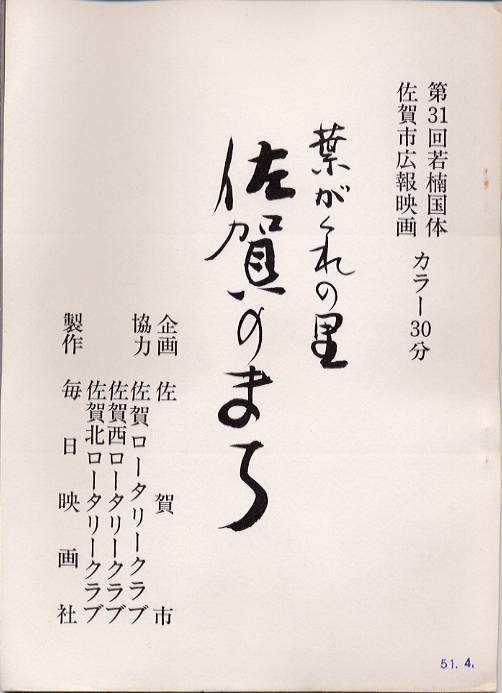 第31回若楠国体
佐賀市広報映画 カラー30分
葉がくれの里
佐賀のまち
企画 佐賀市
協力 佐賀ロータリークラブ
佐賀西ロータリークラブ
佐賀北ロータリークラブ
製作 毎日映画社
51.4.